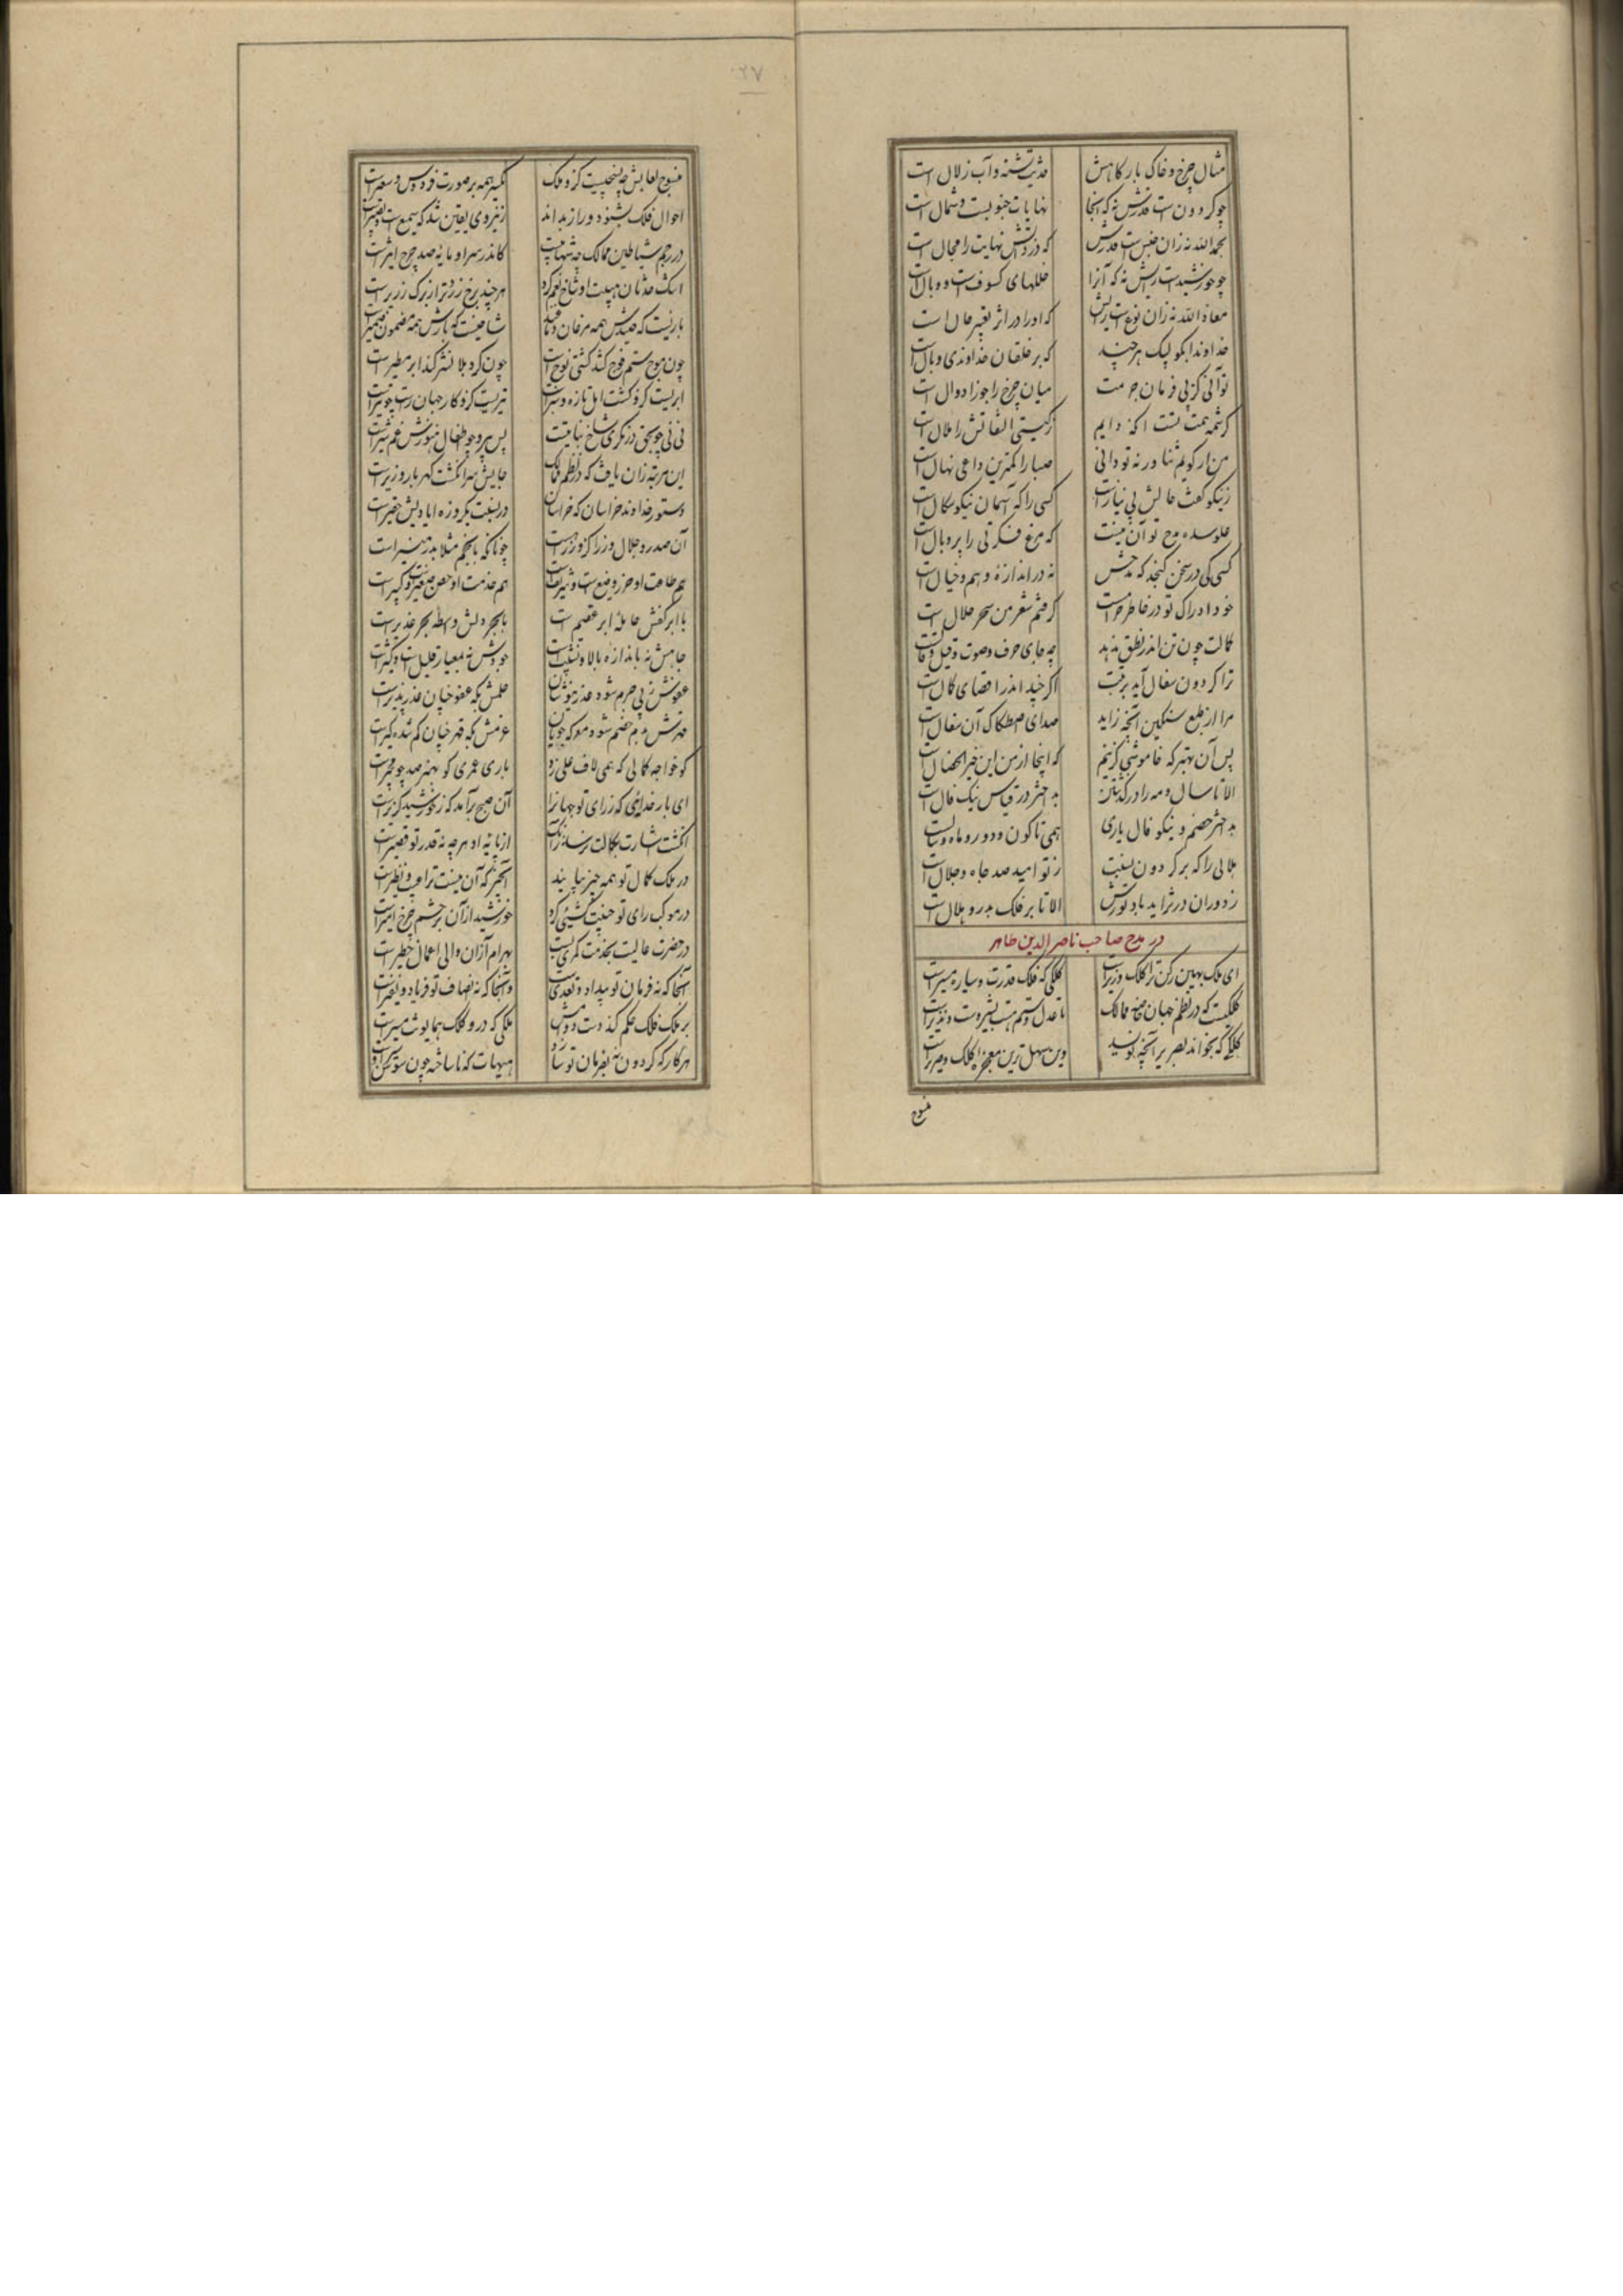 مثال چرخ و خاک بارگاهش حدیث تشنه و آب زلال است
چو گردون است قدرش نه که آنجا نهایات جنوبست و شمال است
بحمدالله نه زان جنس است قدرش که دروی نهایت را مجال است
چو خورشیدست رایش نه که آنرا خللهای کسوف است و وبال است
معاذ الله نه زان نوع است رایش که او را در اثر تغییر حال است
خداوندا بگو لبیک هر چند که بر خلقان خداوندی وبال است
تو آنی کز پی فرمان جزمت میان چرخ را جوزا دوال است
کرشمه همت تست آنکه دایم ز گیتی التفاتش را ملال است
من ار گویم ثنا ور نه تو دانی صبا را کمترین داعی نهال است
ز نیکو گفت حالش بی نیازست کسی را که آسمان نیکو سگال است
مدح تو آن نیست که مرغ فکرتی را پر و بال است
کسی کی در سخن گنجد که مدحش نه در اندازه وهم و خیال است
خود ادراک تو در خاطر حرامست گرفتم شعر من سحر حلال است
کمالت چون تن اندر نطق ندهد چه جای حرف و صوت و قیل و قالست
ترا گردون سفال آید برتبت اگر چند اندر اقصای کمال است
مرا از طبع سنگین آنچه زاید صدای اصطکاک آن سفال است
پس آن بهتر که خاموشی گزینم که اینجا از من این خیر الخصال است
الا تا سال و مه را در گذشتن بد اختر در قیاس نیک فال است
بد اختر خصم و نیکو فال یاری همی تا کون و دور و ماه و سالست
هلالی را که بر گردون نسبت ز تو امید صد جاه و جلال است
ز دوران در تزاید باد نورش الا تا بر فلک بدر و هلال است
در مدح صاحب ناصر الدین طاهر
ای ملک بهین رکن ترا کلک وزیرست کلکی که فلک قدرت و سیاره مسیرست
کلکیست که در نظم جهان خاصه ممالک تا عدل و ستم هست بشیرست و نذیرست
کلکی که بخواند بصریر آنچه نویسد وین سهل ترین معجزه کلک و صریرست
منسوج
۲۷
منسوج لعابش چه نسیجیست کزو ملک یکسر همه بر صورت فردوس و سعیرست
احوال فلک بشنود و راز بداند زین روی یقین شد که سمیع است و بصیرست
در رجم شیاطین ممالک چو شهابیست کاندر سر او مایه صد چرخ اثیرست
اشک حدثان هیبت او شاخ بقم کرد هر چند برخ زردتر از برگ زریرست
بازیست که صیدش همه مرغان شاخیست که بارش همه مضمون ضمیرست
چون موج ستم اوج کشد کشتی نوح است چون گرد بلا نشر کند ابر مطیرست
ابریست کزو کشت امل تازه و سبزست تیریست کزو کار جهان راست چو تیرست
نی نی چو بحق درنگری شاخ نباتیست پس پیر و چو اطفال هنوزش غم شیرست
این مرتبه زان یافت که در نظم ممالک جایش سر انگشت گهربار وزیرست
دستور خداوند خراسان که خراسان در نسبت یکروزه ایادیش حقیرست
آن صدر و جلال وزرا کز وزراست چونانکه بانجم مثلا بدر منیر است
هم طاعت او حرز وضیع است و شریفست هم خدمت او حصن صغیرست و کبیرست
با ابر کفش حامله ابر عقیم است با بحر دلش واسطه بحر غدیرست
جاهش نه باندازه بالا و نشیبست جودش نه بمعیار قلیل است و کثیرست
عفوش ز پی جرم شود عذر نیوشان حلمش بگه عفو چنان عذر پذیرست
قهرش بدم خصم شود معرکه جویان عزمش بگه قهر چنان گم شده گیرست
کو خواجه کمالی که همی لاف علی زد باری عمری کو بهنر صد چو مجیرست
ای بار خدائی که ز رای تو جهانرا آن صبح برآمد که ز خورشید گزیرست
انگشت اشارت بکمالت نرسد زانک از پایه او هر چه نه قدر تو قصیرست
در ملک کمال تو همه چیز بیابند آن چیز که آن نیست ترا عیب و نظیرست
در موکب رای تو جنیبت کشیی کرد خورشید از آن بر حشم چرخ امیرست
در حضرت عالیت بخدمت کمری بست بهرام از آن والی اعمال خطیرست
آنجا که نه فرمان تو بیداد و تعدیست وآنجا که نه انصاف تو فریاد و نفیرست
بر ملک فلک حکم کند دست دوامش ملکی که درو کلک همایونت مشیرست
هر کار که گردون نه بفرمان تو سازد هیهات که ناساخته چون